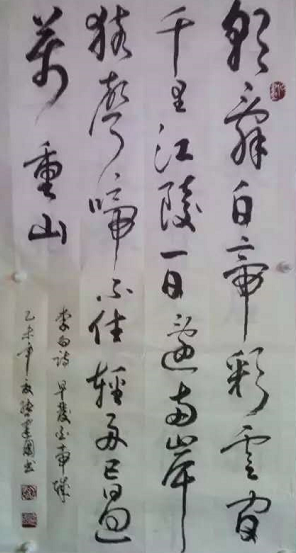 朝辭白帝彩雲間
千里江陵一日還兩岸
猿聲啼不住輕舟已過
萬重山
李白詩早發白帝城
乙未年夏建國書